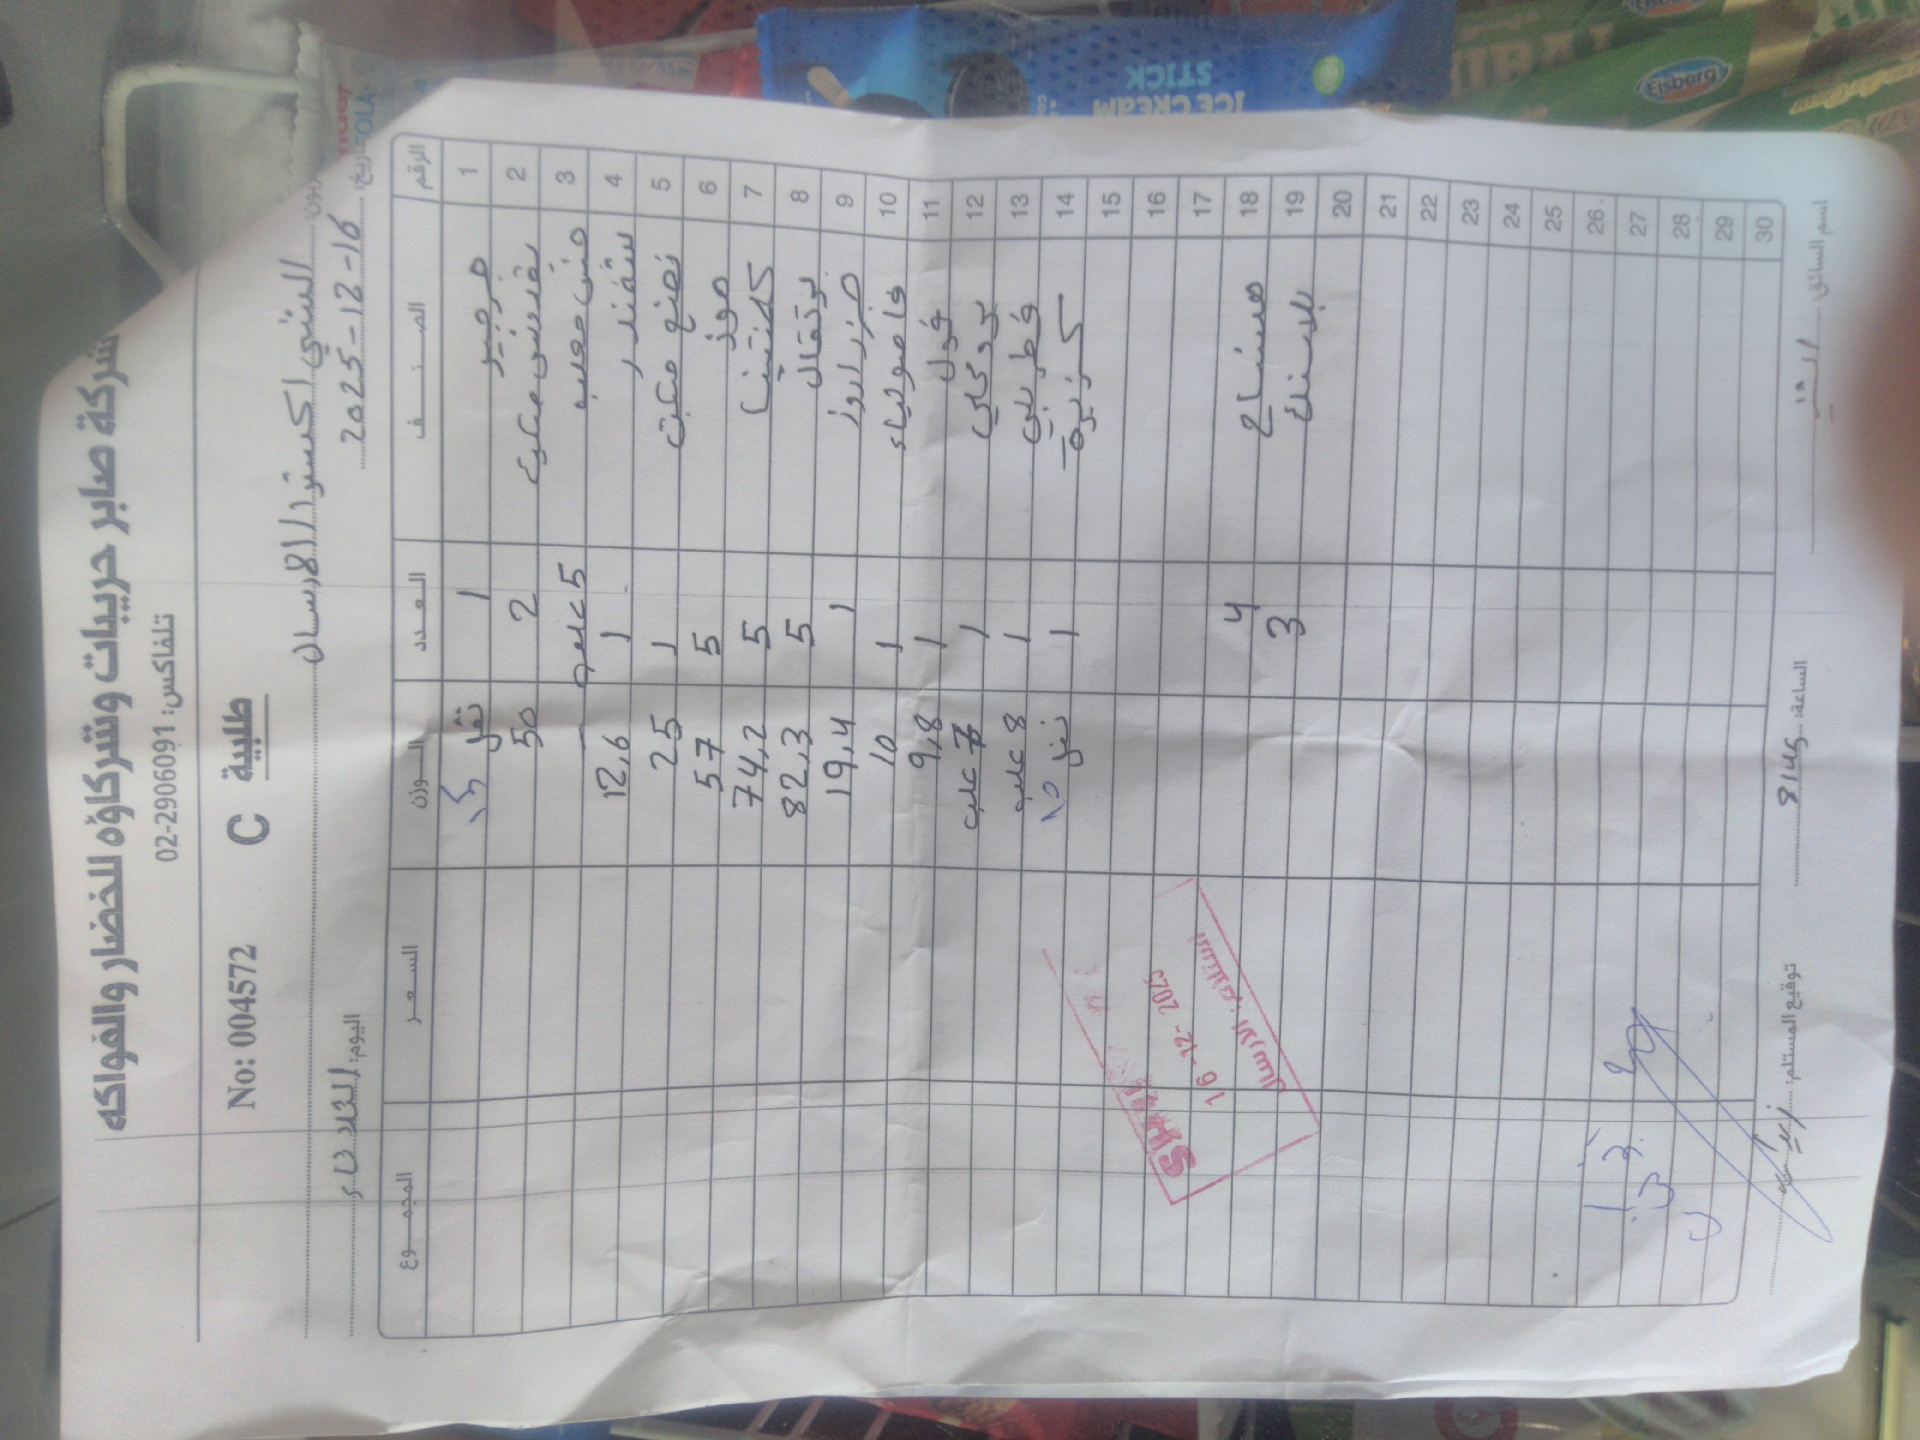 شركة صابر حريبات وشركاؤه للخضار والفواكه
تلفاكس: 02-2906091
No: 004572 C طلبية
الشني اكسترا / الارسال
اليوم: الثلاثاء التاريخ: 2025-12-16
الرقم الصنف العدد الوزن السعر المجموع
1 جرجير 1
2 بقدونس مكبس 2 50
3 خس معلب 5 علبه
4 شمندر 1 12,6
5 نعنع مكبس 1 25
6 موز 5 57
7 كلمنتينا 5 74,2
8 برتقال 5 82,3
9 جزر اروز 1 19,4
10 فاصولياء 1 10
11 فول 1 9,8
12 بروكلي 1 7 علب
13 فطر بني 1 8 علب
14 كزبرة 1
15
16
17
18 مسناح 4
19 بلاستك 3
20
21
22
23
24
25
26
27
28
29
30
16-12-2025
استلام: الارسال
اسم السائق
الساعة: 8:45
توقيع المستلم:
ICE CREAM
STICK
Eisberg